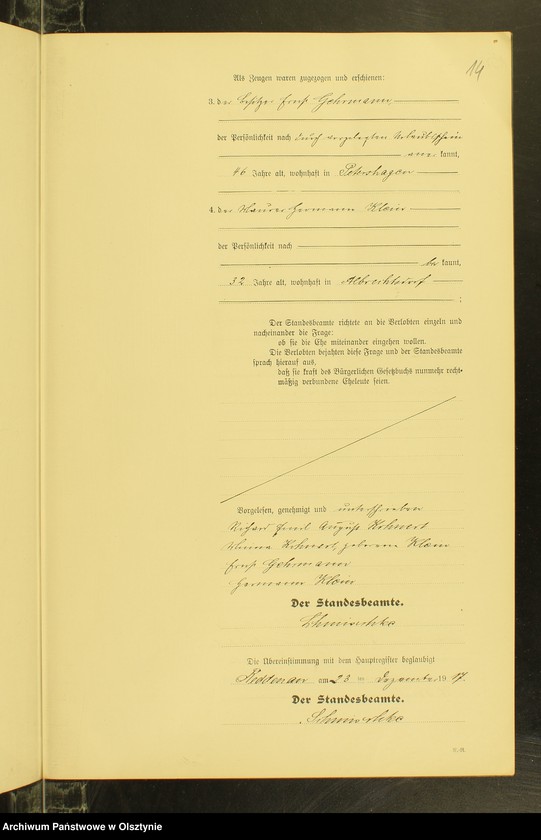 14
Als Zeugen waren zugezogen und erschienen:
3. der Besitzer Ernst Gehrmann
der Persönlichkeit nach durch vorgelegten Urlaubschein
aner kannt,
46 Jahre alt, wohnhaft in Petershagen
4. der Maurer Hermann Klein
der Persönlichkeit nach
be kannt,
32 Jahre alt, wohnhaft in Albrechtsdorf
;
Der Standesbeamte richtete an die Verlobten einzeln und
nacheinander die Frage:
ob sie die Ehe miteinander eingehen wollen.
Die Verlobten bejahten diese Frage und der Standesbeamte
sprach hierauf aus,
daß sie kraft des Bürgerlichen Gesetzbuchs nunmehr recht-
mäßig verbundene Eheleute seien.
Vorgelesen, genehmigt und unterschrieben
Richard Emil August Kehnert
Minna Kehnert, geborene Klein
Ernst Gehrmann
Hermann Klein
Der Standesbeamte.
Die Übereinstimmung mit dem Hauptregister beglaubigt
am 23 ten Dezember 19 17.
Der Standesbeamte.
Archiwum Państwowe w Olsztynie